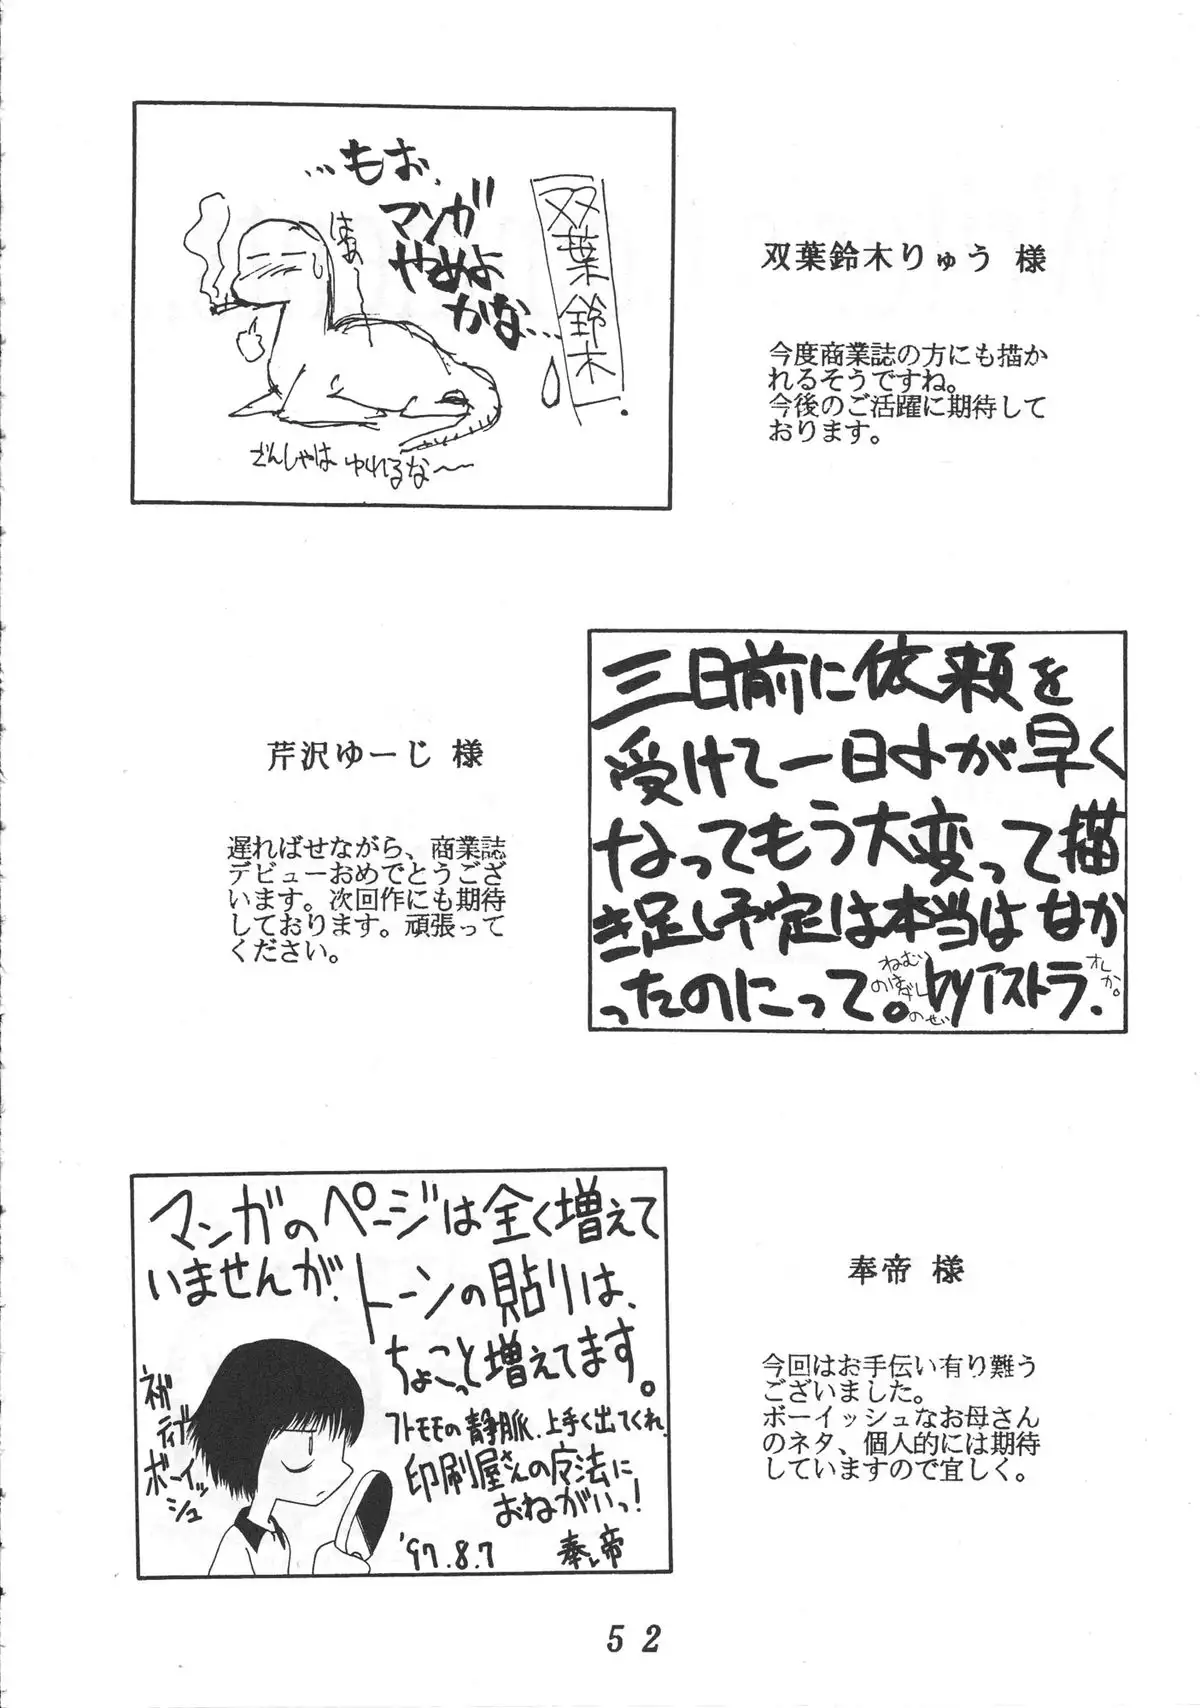 …もお、
マンガ
やめよ
かな…
はぁ〜
双葉鈴木
ざんしゃは ゆれるな〜〜
双葉鈴木りゅう 様
今度商業誌の方にも描か
れるそうですね。
今後のご活躍に期待して
おります。
芹沢ゆーじ 様
遅ればせながら、商業誌
デビューおめでとうござ
います。次回作にも期待
しております。頑張って
ください。
三日前に依頼を
受けて一日〆が早く
なってもう大変って描
き足し予定は本当はなか
ったのにって。byアストラ.
マンガのページは全く増えて
いませんが、
トーンの貼りは、
ちょこっと増えてます。
フトモモの静脈、上手く出てくれ、
印刷屋さんの魔法に
おねがいっ!
'97.8.7 奉帝
ネガ
ティブ
ボーイッ
シュ
奉帝 様
今回はお手伝い有り難う
ございました。
ボーイッシュなお母さん
のネタ、個人的には期待
していますので宜しく。
52